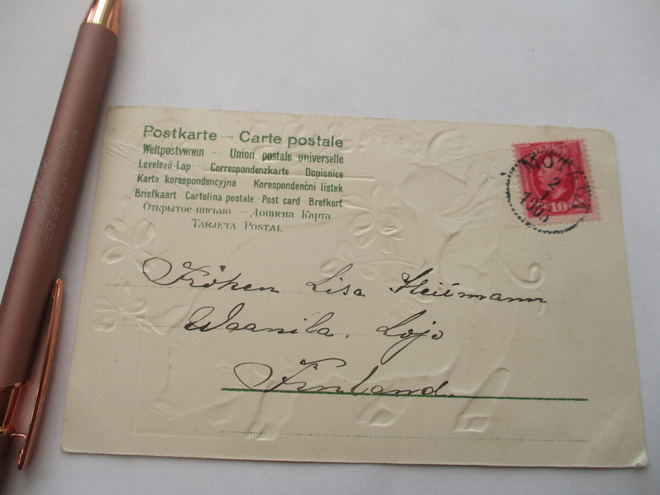 Postkarte – Carte postale
Weltpostverein – Union postale universelle
Levelező-Lap – Correspondenzkarte – Dopisnice
Karta korespondencyjna Korespondenční listek
Briefkaart Cartolina postale Post card Brefkort
Открытое письмо – Дописна Карта
Tarjeta Postal
MOTALA
2
1
10
Fröken Lisa Heiimann
Waanila. Lojo
Finland.